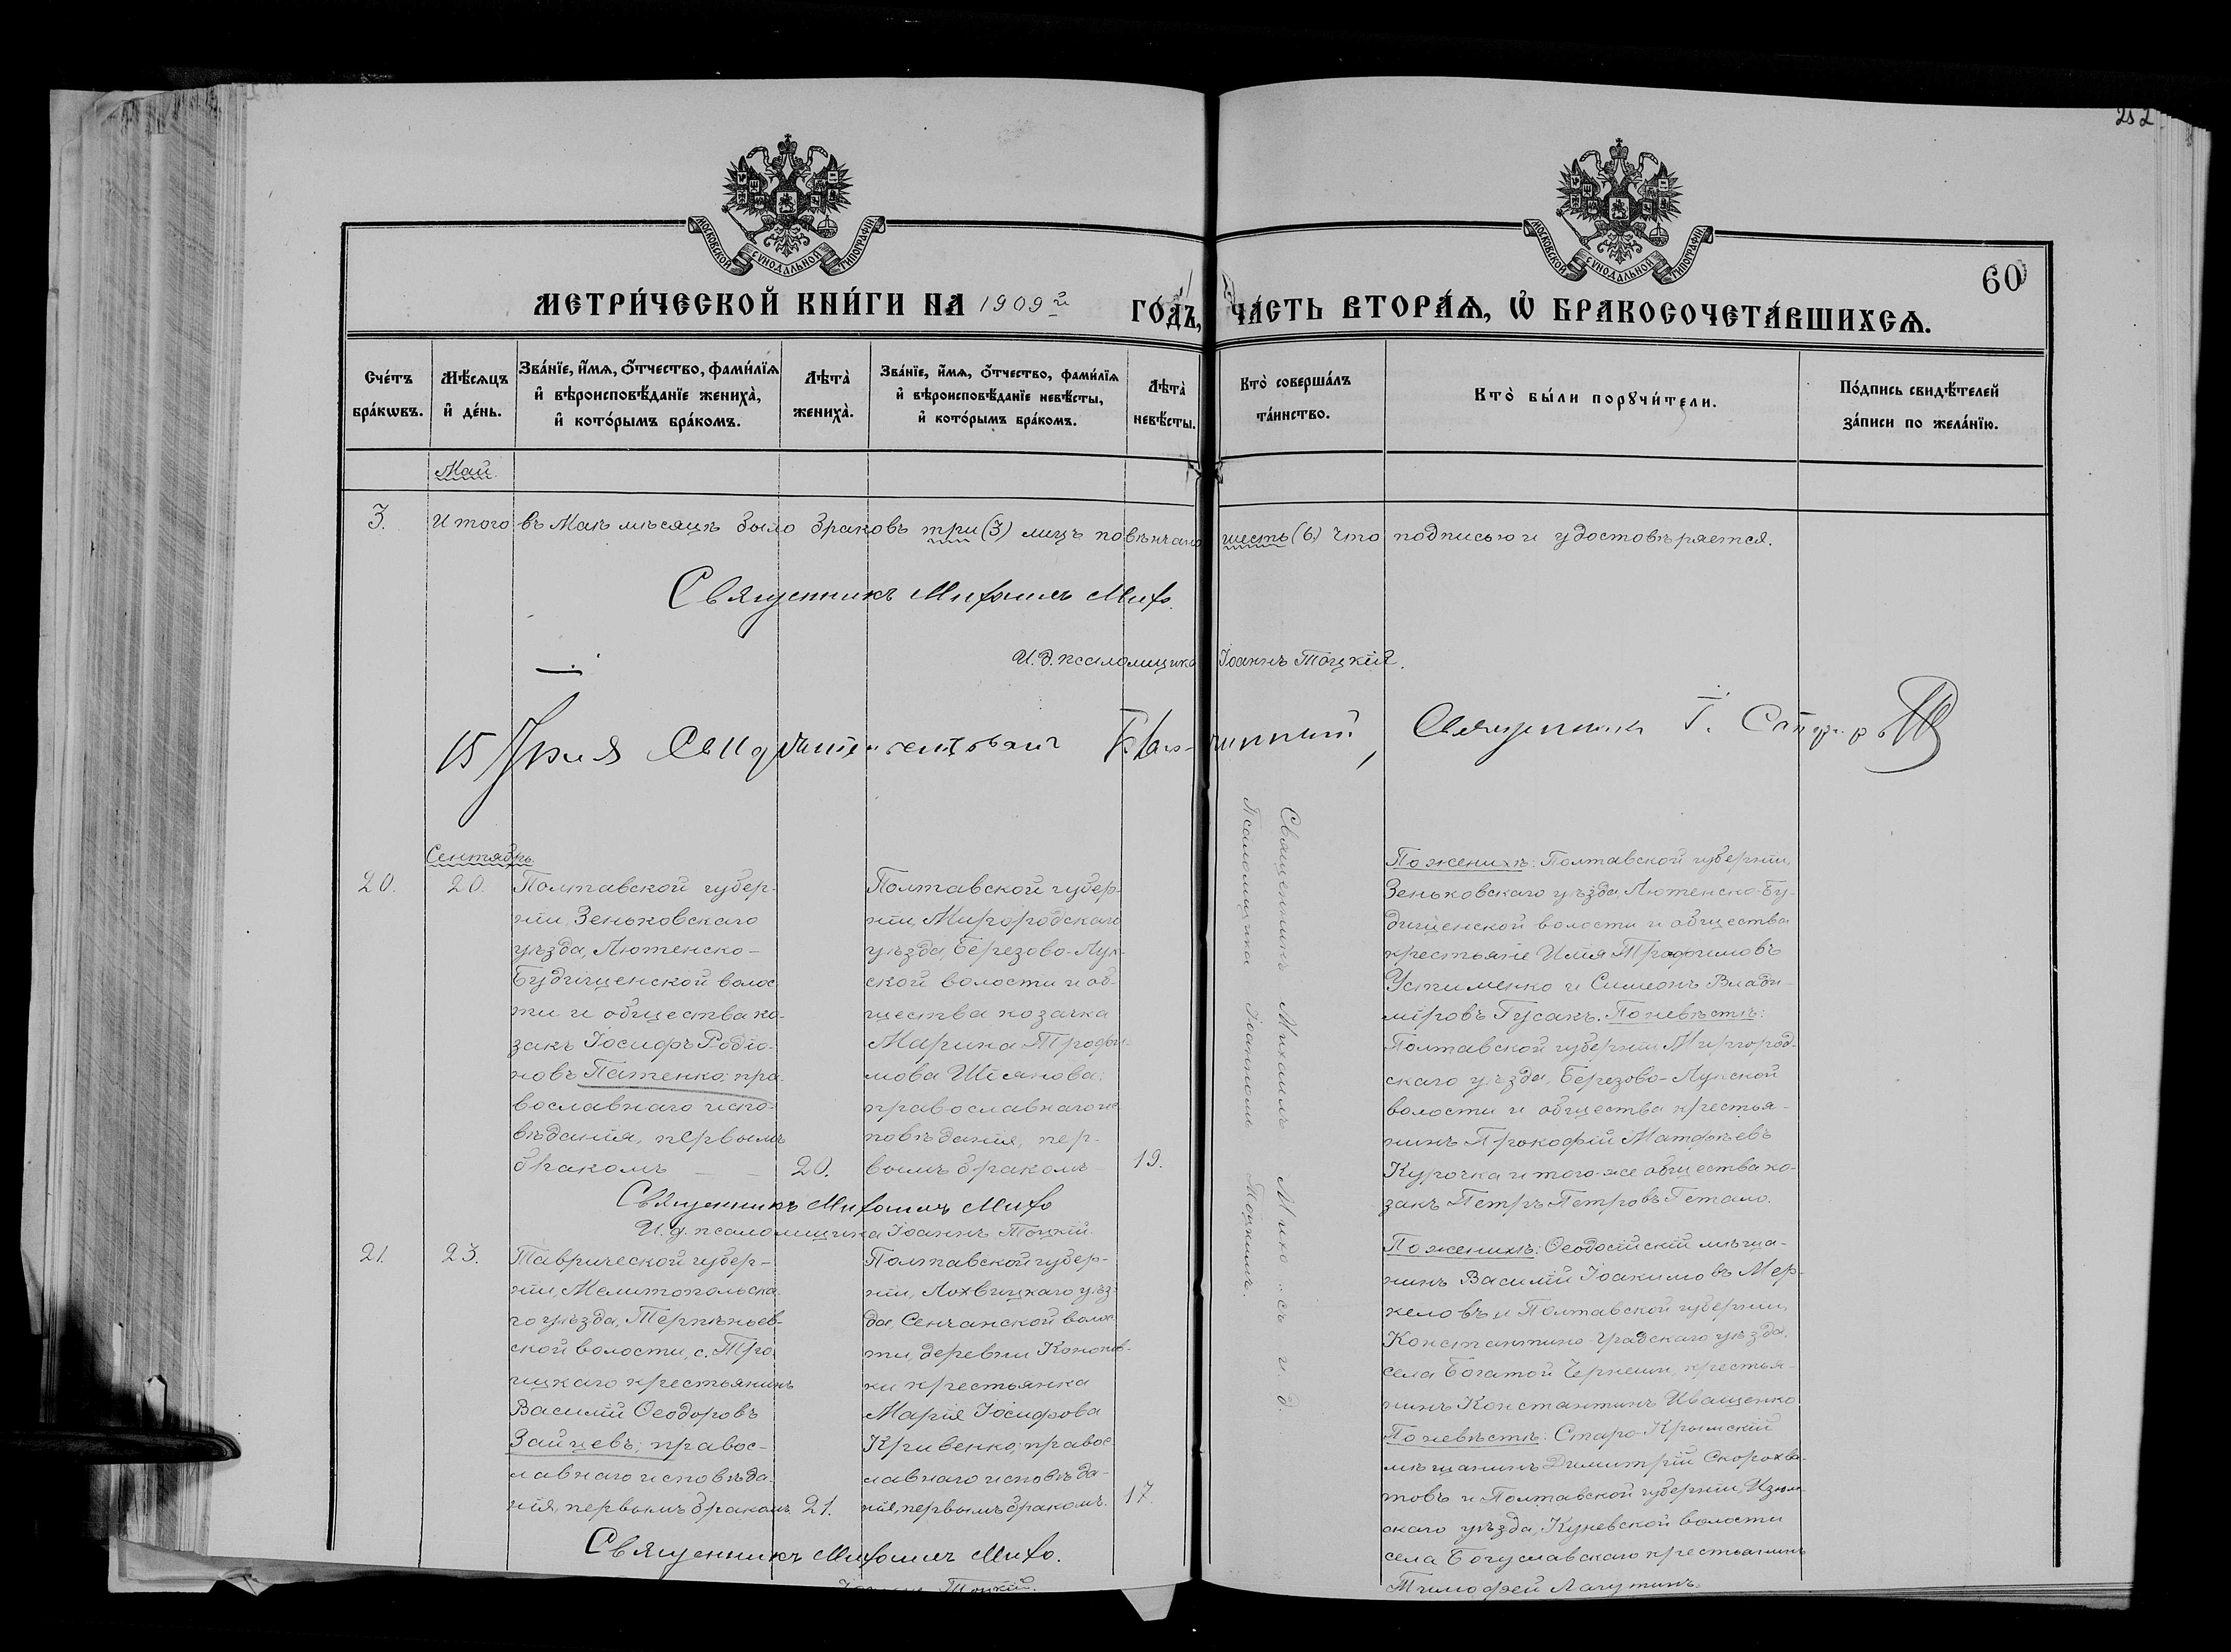 252
МОСКОВСКОЙ СѴНОДАЛЬНОЙ ТИПОГРАФІИ
МОСКОВСКОЙ СѴНОДАЛЬНОЙ ТИПОГРАФІИ
60
МЕТРИ́ЧЕСКОЙ КНИ́ГИ НА 1909й ГО́ДЪ, ЧА́СТЬ ВТОРА́Ѧ, Ѽ БРАКОСОЧЕТА́ВШИХСѦ.
Сче́тъ
бра́кѡвъ.
Мѣ́сяцъ
и҆ де́нь.
Зва́нїе, и҆́мѧ, ѻ҆́тчество, фами́лїѧ
и҆ вѣроисповѣ́данїе жениха̀,
и҆ кото́рымъ бра́комъ.
Лѣта̀
жениха̀.
Зва́нїе, и҆́мѧ, ѻ҆́тчество, фами́лїѧ
и҆ вѣроисповѣ́данїе невѣ́сты,
и҆ кото́рымъ бра́комъ.
Лѣта̀
невѣ́сты.
Кто̀ соверша́лъ
та́инство.
Кто̀ бы́ли порꙋчи́тели.
По́дпись свидѣ́телей
за́писи по жела́нїю.
Май.
3. Итого въ Маѣ мѣсяцѣ было браковъ три (3) лицъ повѣнчано шесть (6) что подписью и удостовѣряется.
Священникъ Михаилъ Михо.
И.д. псаломщика Іоаннъ Тоцкій.
15 Священникъ І.
Сентябрь.
20. 20.
Полтавской губер-
ніи, Зеньковскаго
уѣзда, Лютенско-
Будищенской волос
ти и общества ко-
закъ Іосифъ Родіо-
новъ Патенко; пра-
вославнаго испо-
вѣданія, первымъ
бракомъ
20.
Полтавской губер-
ніи, Миргородскаго
уѣзда, Березово-Лук-
ской волости и об-
щества козачка
Марина Трофи-
мова
православнаго ис-
повѣданія, пер-
вымъ бракомъ
19.
Священникъ Михаилъ Михо..съ и. д.
Псаломщика Іоанномъ Тоцкимъ.
По женихѣ: Полтавской губерніи,
Зеньковскаго уѣзда, Лютенско-Бу-
дищенской волости и общества
крестьяне Илія Трофимовъ
Устименко и Симеонъ Влади-
міровъ Гусакъ. По невѣстѣ:
Полтавской губерніи Миргород-
скаго уѣзда, Березово-Лукской
волости и общества крестья-
нинъ Прокофій Матфѣевъ
Курочка и того-же общества ко-
закъ Петръ Петровъ Гетало.
Священникъ Михаилъ Михо
И. д. псаломщика Іоаннъ Тоцкій.
21. 23.
Таврической губер-
ніи, Мелитопольска-
го уѣзда, Терпѣньев-
ской волости, с. Тро
ицкаго крестьянинъ
Василій Ѳеодоровъ
Зайцевъ; правос-
лавнаго исповѣда-
нія, первымъ бракомъ
21.
Полтавской губер-
ніи, Лохвицкаго уѣз-
да, Сенчанской волос
ти, деревни Кононов-
ки крестьянка
Марія Іосифова
Кривенко; правос
лавнаго исповѣда-
нія, первымъ бракомъ.
17.
По женихѣ: Ѳеодосійскій мѣща-
нинъ Василій Іоакимовъ Мер-
келовъ и Полтавской губерніи,
Константино-градскаго уѣзда,
села Богатой Чернещи, крестья-
нинъ Константинъ Иващенко
По невѣстѣ: Старо-Крымскій
мѣщанинъ Димитрій Скорохва-
товъ и Полтавской губерніи, Изюм-
скаго уѣзда, волости
села Богуславскаго крестьянинъ
Тимофей Лагутинъ.
Священникъ Михаилъ Михо.
Іоаннъ Тоцкій.